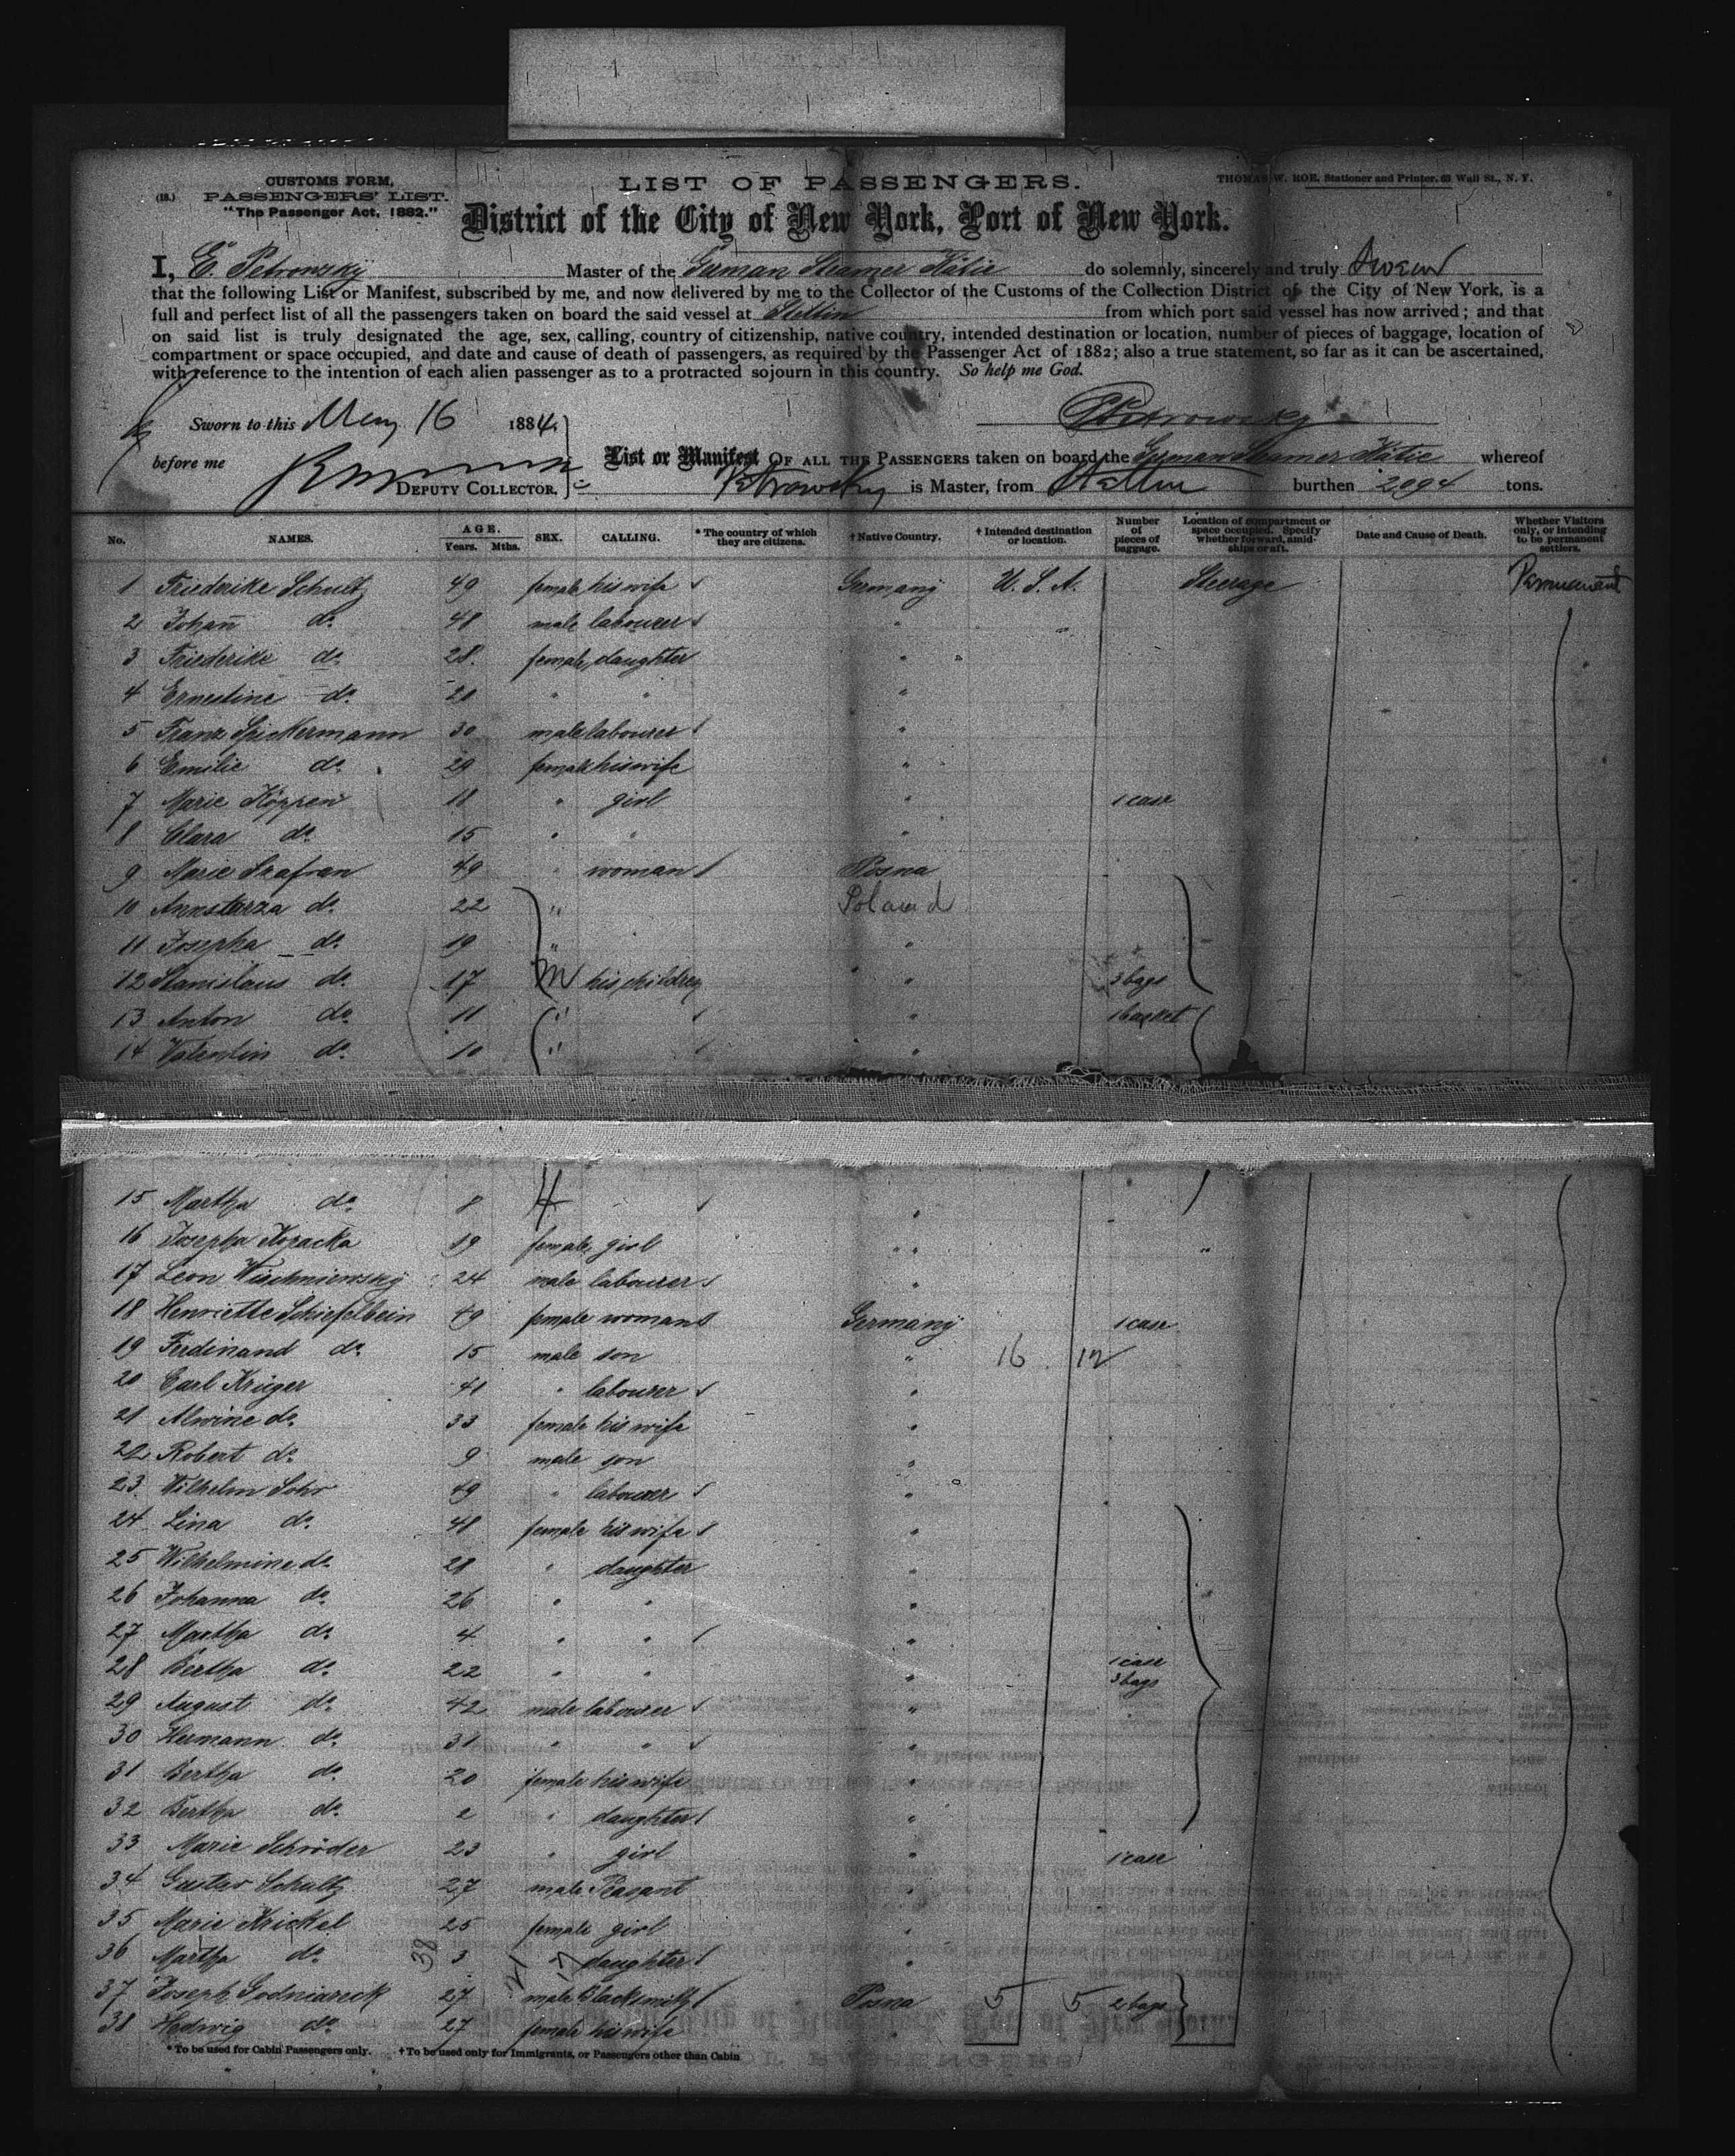 CUSTOMS FORM,
(18.) PASSENGERS' LIST.
"The Passenger Act, 1882."
LIST OF PASSENGERS.
THOMAS W. ROE, Stationer and Printer, 63 Wall St., N. Y.
District of the City of New York, Port of New York.
I, E. Petrowsky Master of the German Steamer Kätie do solemnly, sincerely and truly swear
that the following List or Manifest, subscribed by me, and now delivered by me to the Collector of the Customs of the Collection District of the City of New York, is a
full and perfect list of all the passengers taken on board the said vessel at Stettin from which port said vessel has now arrived; and that
on said list is truly designated the age, sex, calling, country of citizenship, native country, intended destination or location, number of pieces of baggage, location of
compartment or space occupied, and date and cause of death of passengers, as required by the Passenger Act of 1882; also a true statement, so far as it can be ascertained,
with reference to the intention of each alien passenger as to a protracted sojourn in this country. So help me God.
Sworn to this May 16 1884, Petrowsky
before me
DEPUTY COLLECTOR.
List or Manifest OF ALL THE PASSENGERS taken on board the German Steamer Kätie whereof
Petrowsky is Master, from Stettin burthen 2094 tons.
No. NAMES. AGE. Years. Mths. SEX. CALLING. * The country of which they are citizens. † Native Country. † Intended destination or location. Number of pieces of baggage. Location of compartment or space occupied. Specify whether forward, amidships or aft. Date and Cause of Death. Whether Visitors only, or intending to be permanent settlers.
1 Friederike Schultz 49 female his wife Germany U. S. A. Steerage Permanent
2 Johan̄ do. 48 male labourer " "
3 Friederike do. 28 female daughter " "
4 Ernestine do. 20 " " "
5 Franz Spickermann 30 male labourer "
6 Emilie do. 29 female his wife "
7 Marie Köppen 18 " girl " 1 case
8 Clara do. 15 " " "
9 Marie Srafran 49 " woman Posna
10 Annstarza do. 22 " Poland
11 Josepha do. 19 " "
12 Stanislaus do. 17 M his children " 3 bags
13 Anton do. 11 " " 1 basket
14 Valentin do. 10 " "
15 Martha do. 8 "
16 Josepha Kopacka 19 female girl " "
17 Leon Wischniewsky 24 male labourer "
18 Henriette Schiefelbein 49 female woman Germany 1 case
19 Ferdinand do. 15 male son " 16 12
20 Carl Krüger 41 " labourer "
21 Alwine do. 33 female his wife "
22 Robert do. 9 male son "
23 Wilhelm Sohr 49 " labourer "
24 Lina do. 48 female his wife "
25 Wilhelmine do. 28 " daughter "
26 Johanna do. 26 " " "
27 Martha do. 4 " " "
28 Bertha do. 22 " " " 1 case 3 bags
29 August do. 42 male labourer "
30 Hermann do. 31 " " "
31 Bertha do. 20 female his wife "
32 Bertha do. 2 " daughter "
33 Marie Schröder 23 " girl " 1 case
34 Gustav Schultz 27 male Peasant "
35 Marie Krickel 25 female girl "
36 Martha do. 38 3 daughter "
37 Joseph Godniareck 27 male Blacksmith Posna 5 5 2 bags
38 Hedwig do. 27 female his wife "
* To be used for Cabin Passengers only. † To be used only for Immigrants, or Passengers other than Cabin